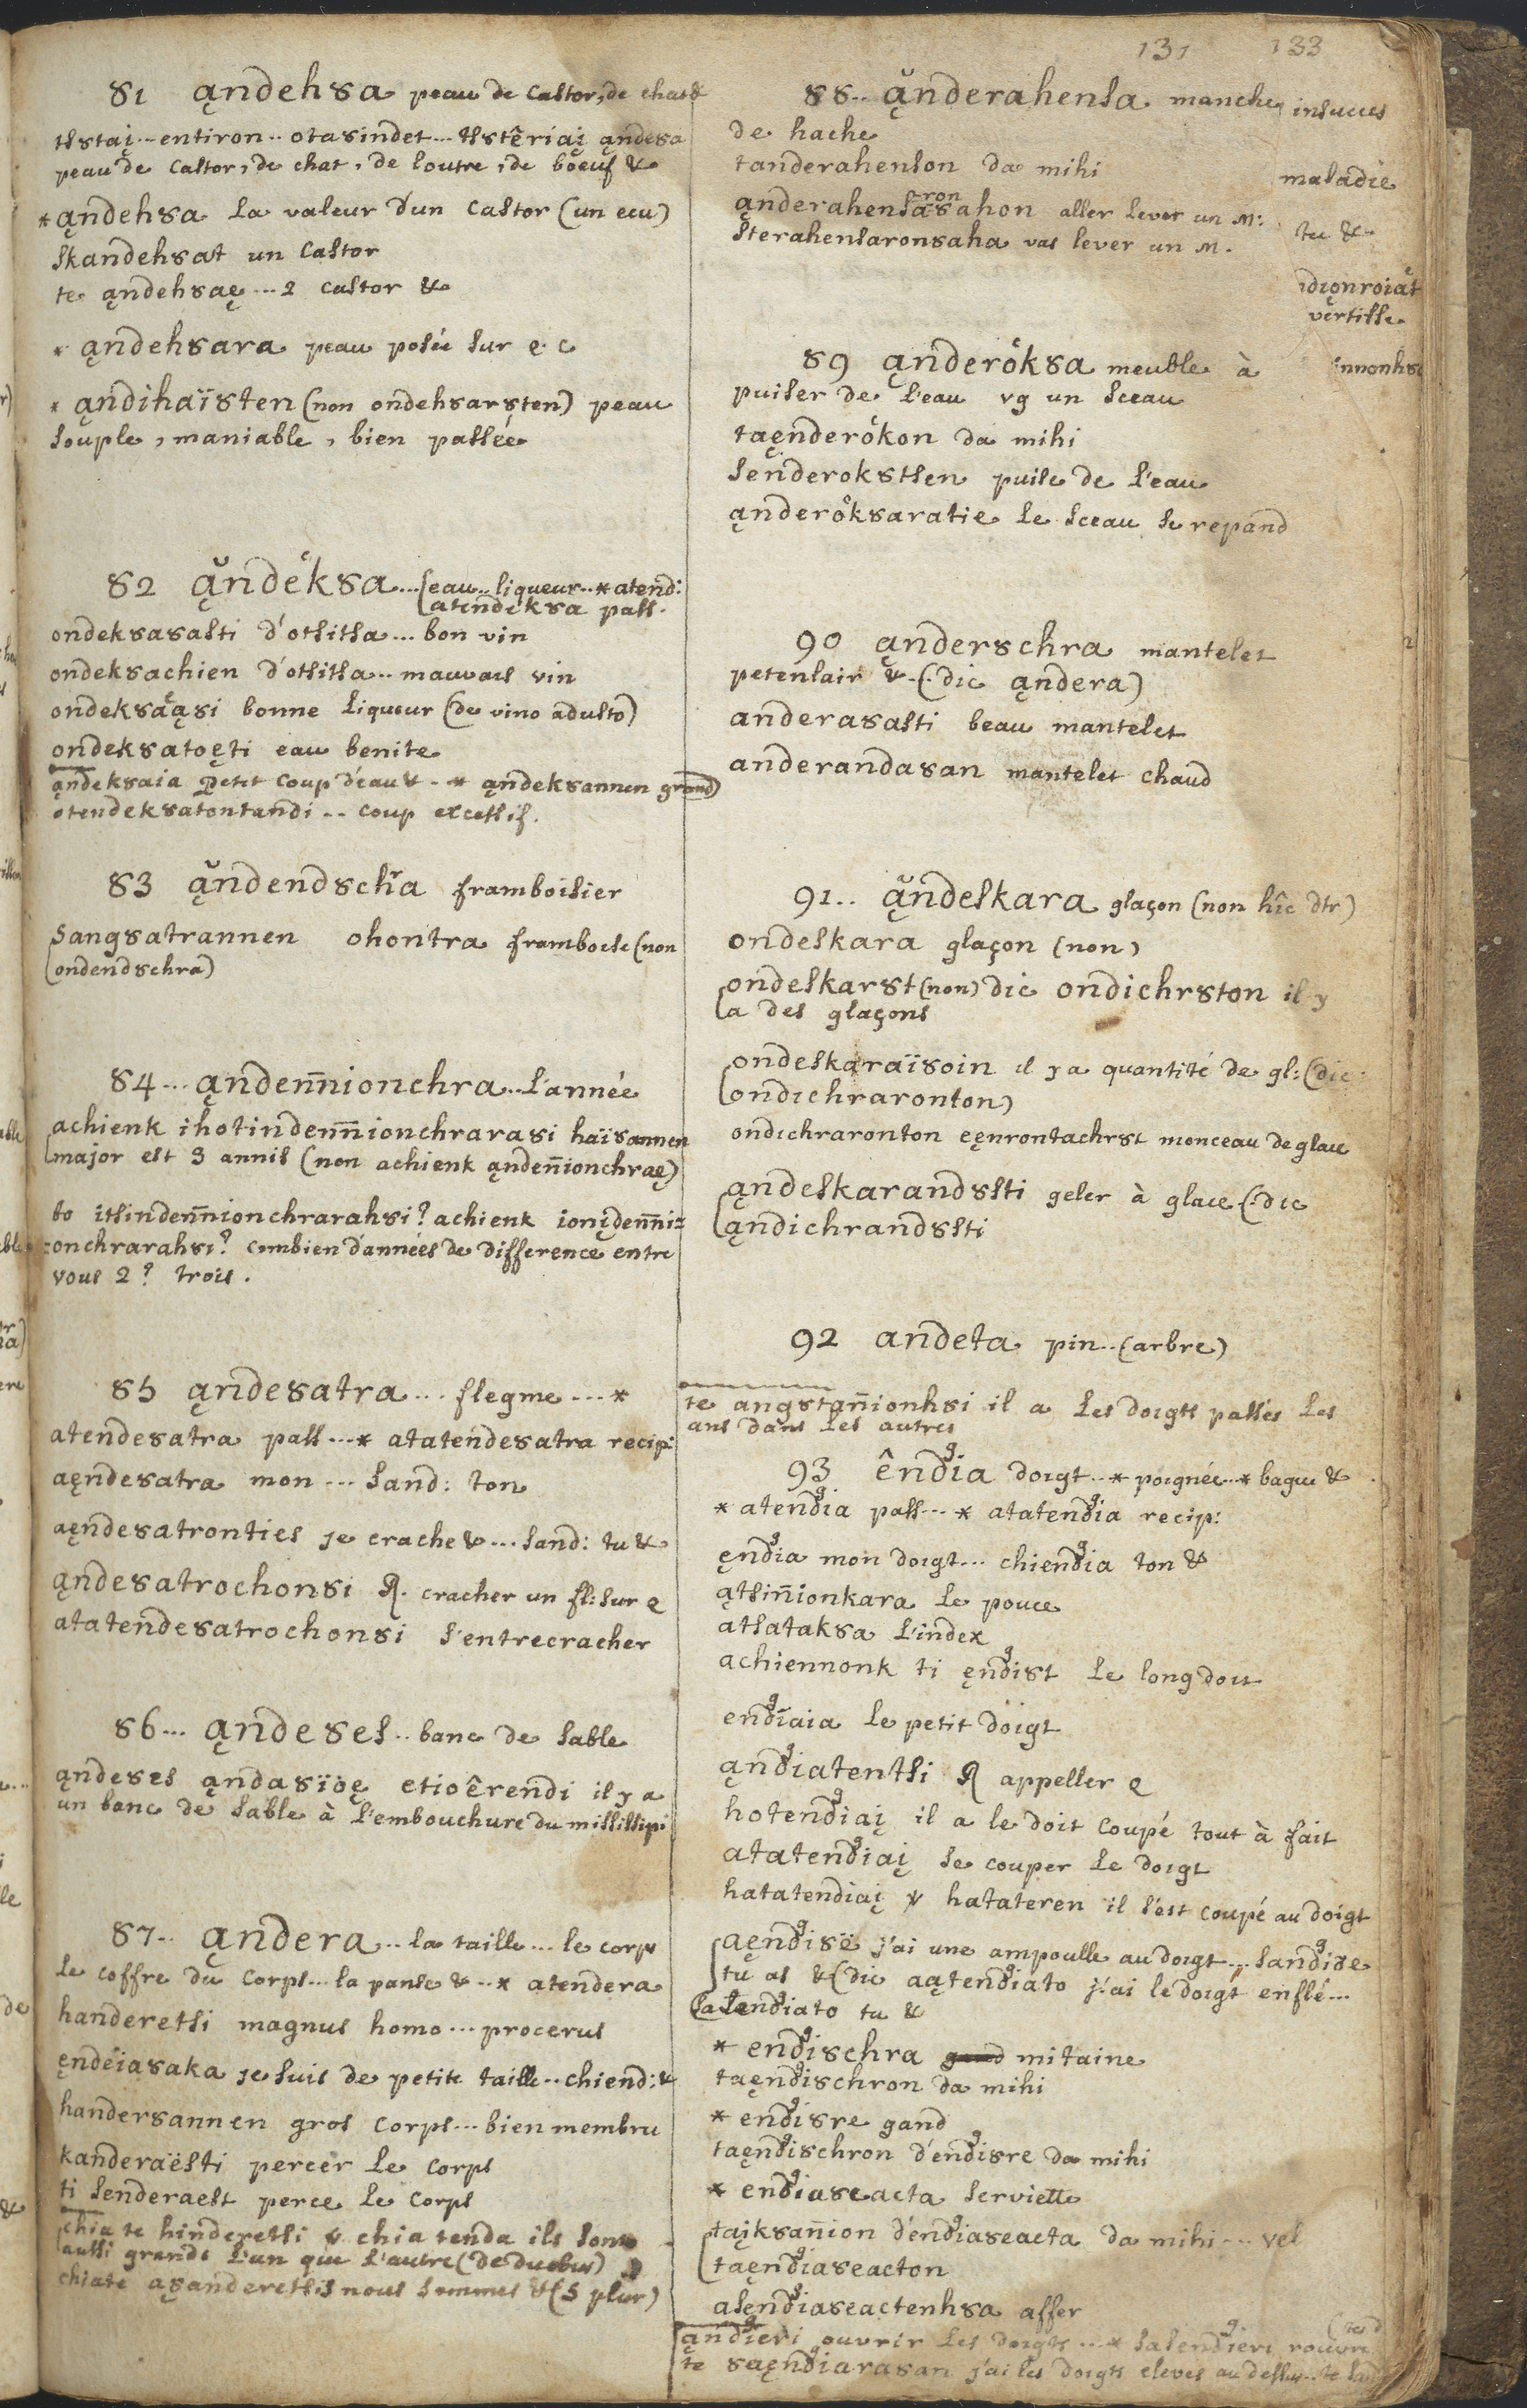 131 133
81 ąndehsa peau de Castor, de chat &
tsstaį... entiron.. otasindet... tsstêriaį ąndesa
peau de Castor, de chat, de loutre, de boeuf &
* ąndehsa la valeur d'un Castor (un ecu)
skandehsat un Castor
te ąndehsaę ... 2 castor &
* ąndehsara peau posée sur q. c
* ąndihaïsten (non ondehsarsten) peau
souple, maniable, bien passée
82 ąndeksa... eau.. liqueur.. * atend:
atendeksa pass.
ondeksasasti d'otsitsa... bon vin
ondeksachien d'otsitsa.. mauvais vin
ondeksaąsi bonne liqueur (de vino adusto)
ondeksatoęti eau benite
ąndeksaia petit coup d'eau & - * ąndeksannen grand
otendeksatontandi .. coup excessif.
83 ąndendschra framboisier
sangsatrannen ohontra framboise (non
ondendschra)
84... ąndennionchra.. l'année
achienk ihotindennionchrarasi haïsannen
major est 3 annis (non achienk ąndennionchraę)
to itsindennionchrarahsi? achienk ionįdenni=
=onchrarahsi? combien d'années de difference entre
vous 2? trois.
85 ąndesatra... flegme ... *
atendesatra pass...* atatendesatra recip:
aęndesatra mon ... sand: ton
aęndesatronties je crache & ... sand: tu &
ąndesatrochonsi R. cracher un fl: sur q
atatendesatrochonsi s'entrecracher
86... ąndeses.. banc de sable
ąndeses ąndasïoę etioêrendi il y a
un banc de sable à l'embouchure du missisipi
87.. ąndera.. la taille... le corps
le coffre du corps... la panse & .. * atendera
handeretsi magnus homo... procerus
ęndeïasaka je suis de petite taille.. chiend: &
handersannen gros corps... bien membru
kanderaësti percer le corps
ti senderaest perce le corps
chia te hinderetsi v chia tenda ils sont
aussi grands l'un que l'autre (de duobus)
chiate asanderetsis nous sommes & (5 plur)
88.. ąnderahensa manche
de hache
tanderahenson da mihi
ąnderahensasahon aller lever un M:
aron
sterahensaronsaha vas lever un M.
insuues
maladie
tu &
idionroiat
vertisse
innonhs
89 ąnderöksa meuble à
puiser de l'eau vg un sceau
taęnderökon da mihi
senderokstsen puise de l'eau
ąnderöksaratie le sceau se repand
90 ąnderschra mantelet
petenlair & (dic ąndera)
anderasasti beau mantelet
anderandasan mantelet chaud
91.. ąndeskara glaçon (non hîc dtr)
ondeskara glaçon (non)
ondeskarst (non) dic ondichrston il y
a des glaçons
ondeskaraïsoin il y a quantité de gl: (dic
ondichraronton)
ondichraronton eęnrontachrst monceau de glace
ąndeskarandssti geler à glace (dic
ąndichrandssti
92 andeta pin.. (arbre)
te angstannionhsi il a les doigts passés les
uns dans les autres
93 êndia doigt.. * poignée.. * bague &
* atendia pass... * atatendia recip:
ęndia mon doigt... chiendia ton &
ątsinnionkara le pouce
atsataksa l'index
achiennonk ti ęndist le long doit
endiaia le petit doigt
ąndiatentsi R appeller q
hotendiaį il a le doit coupé tout à fait
atatendiaį se couper le doigt
hatatendiaį v hatateren il s'est coupé au doigt
aęndisë j'ai une ampoulle au doigt... sandise
tu as & (dic aątendiato j'ai le doigt enflé...
satendiato tu &
* endischra mitaine
taęndischron da mihi
* endisre gand
taęndischron d'endisre da mihi
* endiaseacta serviette
taįksannion d'endiaseacta da mihi ... vel
taęndiaseacton
asęndiaseactenhsa affer
ąndieri ouvrir les doigts ...* satendieri rouvre
te saęndiarasan j'ai les doigts eleves au dessus.. te sand